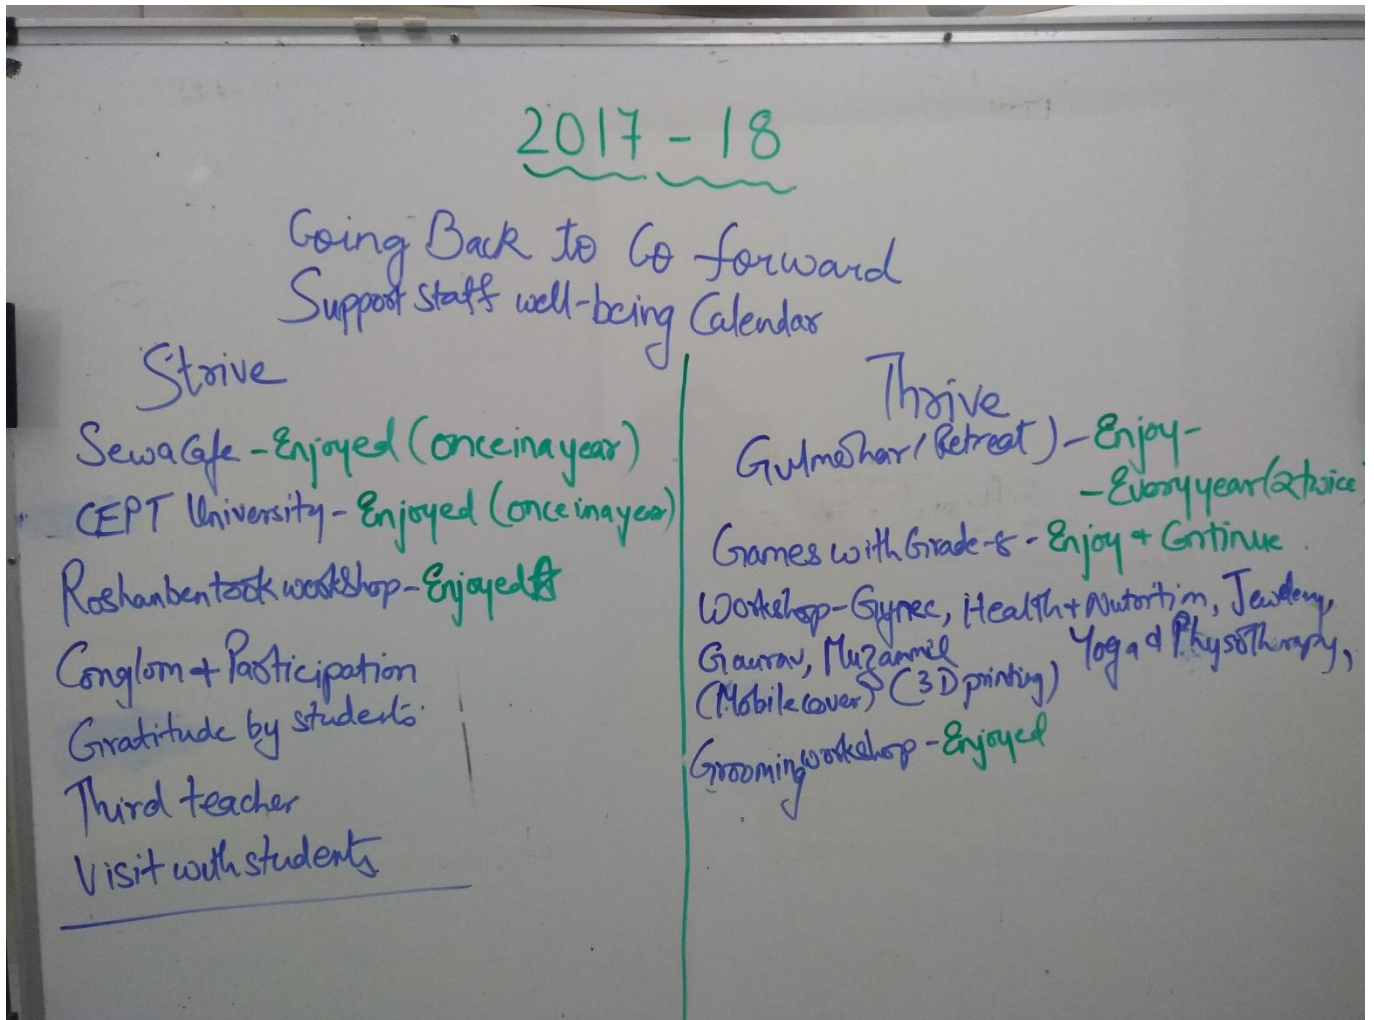 2017-18
Going Back to Go forward
Support staff well-being Calendar
Strive
Sewa Cafe - Enjoyed (once in a year)
CEPT University - Enjoyed (once in a year)
Roshanben took workshop - Enjoyed
Conglom + Participation
Gratitude by students
Third teacher
Visit with students
Thrive
Gulmohar (Retreat) - Enjoy -
- Every year (2 twice
Games with Grade-8 - Enjoy + Continue
Workshop - Gynec, Health + Nutrition, Jewelery,
Gaurav, Muzammil Yoga & Physotherapy,
(Mobile cover) (3D printing)
Grooming workshop - Enjoyed